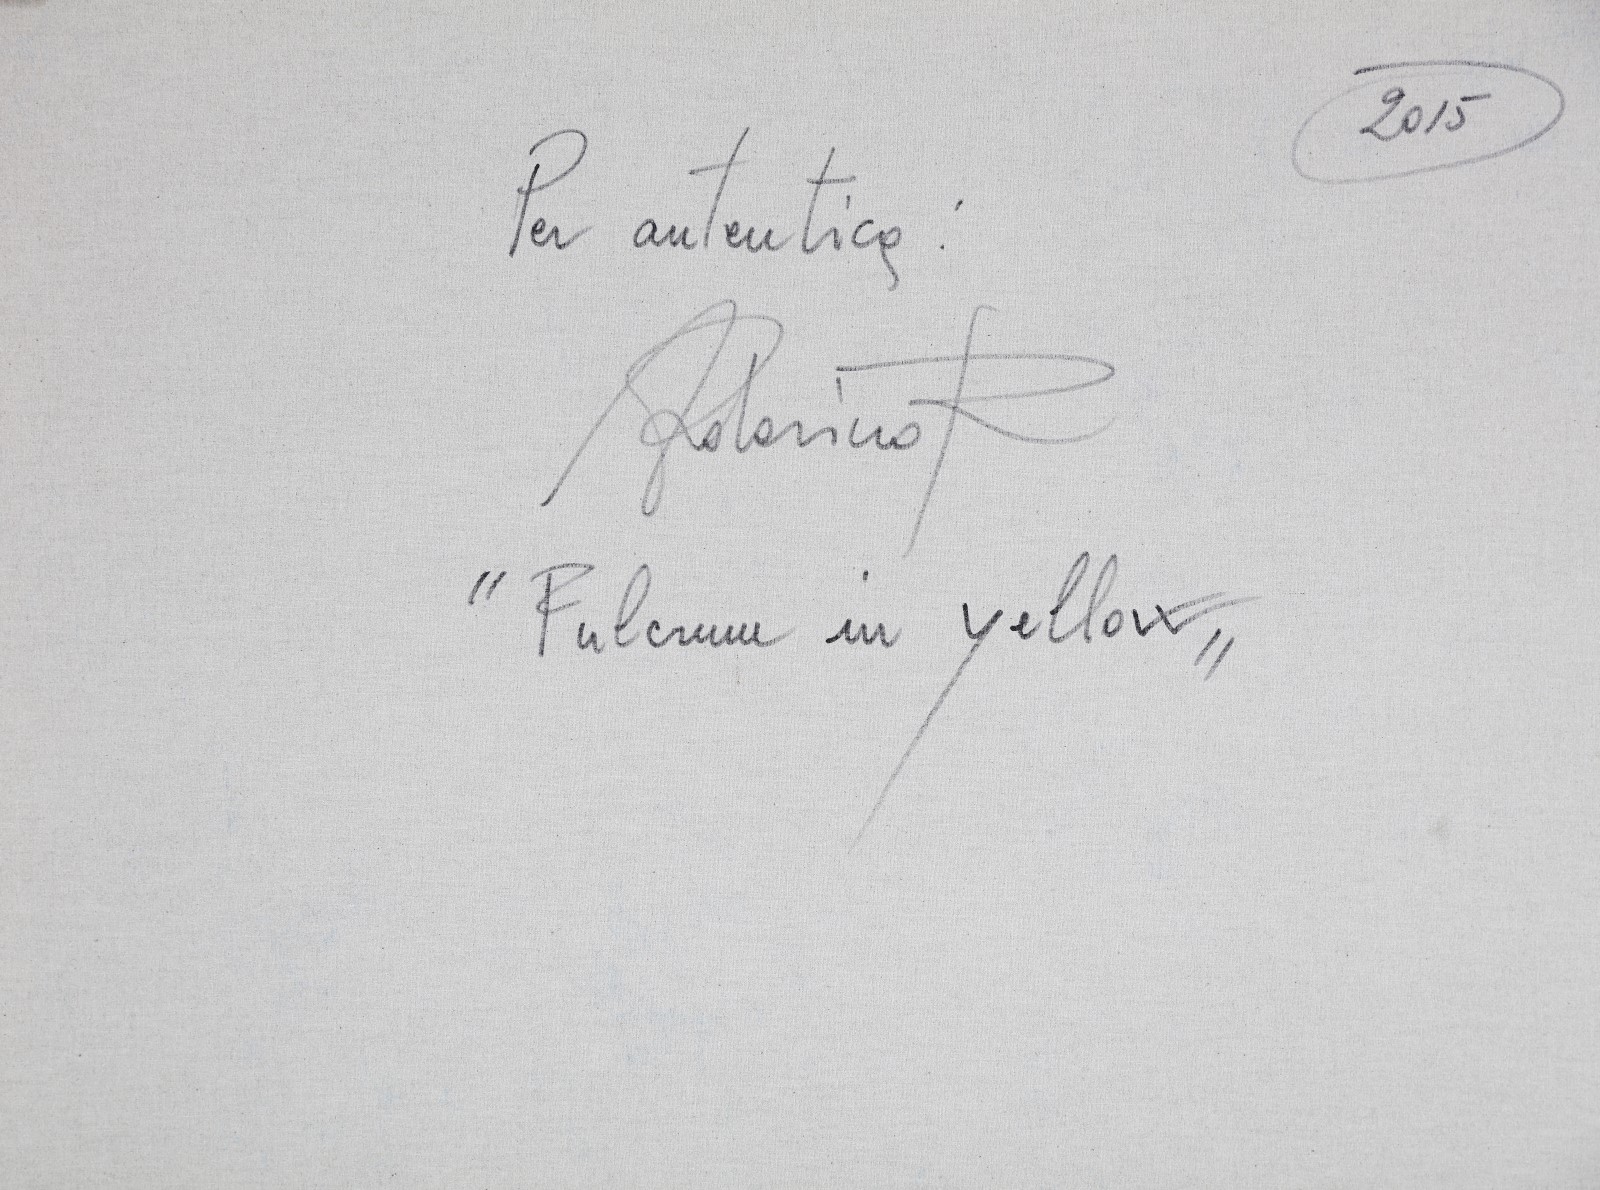 2015
Per autentica:
"Fulcrum in yellow"